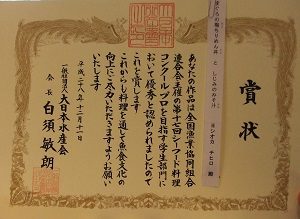 賞状
まぐろの塩ちりめん丼 と しじみのみそ汁
ヨシオカ チヒロ 殿
あなたの作品は全国漁業協同組合
連合会主催の第十七回シーフード料理
コンクールプロを目指す学生部門に
おいて優秀と認められましたので
これを賞します
これからも料理を通して魚食文化の
向上にご尽力いただきますようお願い
いたします
平成二十八年十一月十一日
一般社団法人 大日本水産会
会長 白須敏朗